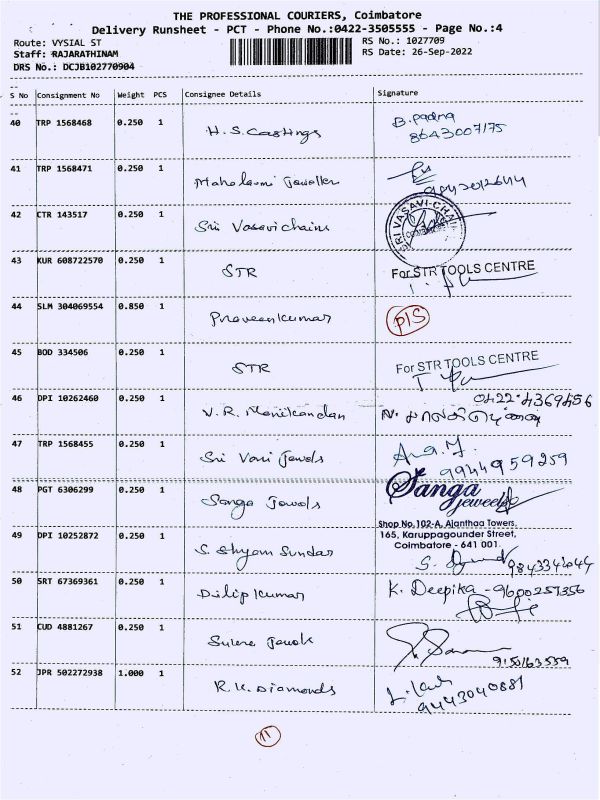 THE PROFESSIONAL COURIERS, Coimbatore
Delivery Runsheet - PCT - Phone No.:0422-3505555 - Page No.:4
Route: VYSIAL ST RS No.: 1027709
Staff: RAJARATHINAM RS Date: 26-Sep-2022
DRS No.: DCJB102770904
S No Consignment No Weight PCS Consignee Details Signature
40 TRP 1568468 0.250 1 H.S. Castings B. Padma
8643007175
41 TRP 1568471 0.250 1 Mahalaxmi Jeweller
42 CTR 143517 0.250 1 Sri Vasavi chains SRI VASAVI CHAIN
43 KUR 608722570 0.250 1 STR For STR TOOLS CENTRE
44 SLM 304069554 0.850 1 Praveen kumar P/S
45 BOD 334506 0.250 1 STR For STR TOOLS CENTRE
0422-4369456
46 DPI 10262460 0.250 1 V.R. Manikandan
47 TRP 1568455 0.250 1 Sri Vani Jewels
9944959259
48 PGT 6306299 0.250 1 Sanga Jewels Sanga
jewels
Shop No, 102-A, Ajanthaa Towers,
165, Karuppagounder Street,
Coimbatore - 641 001.
49 DPI 10252872 0.250 1 S. Shyam Sundar
50 SRT 67369361 0.250 1 Dilip kumar K. Deepika - 9600257356
51 CUD 4881267 0.250 1 Jewels
9150163559
52 JPR 502272938 1.000 1 R.K. Diamonds
9443040881
11